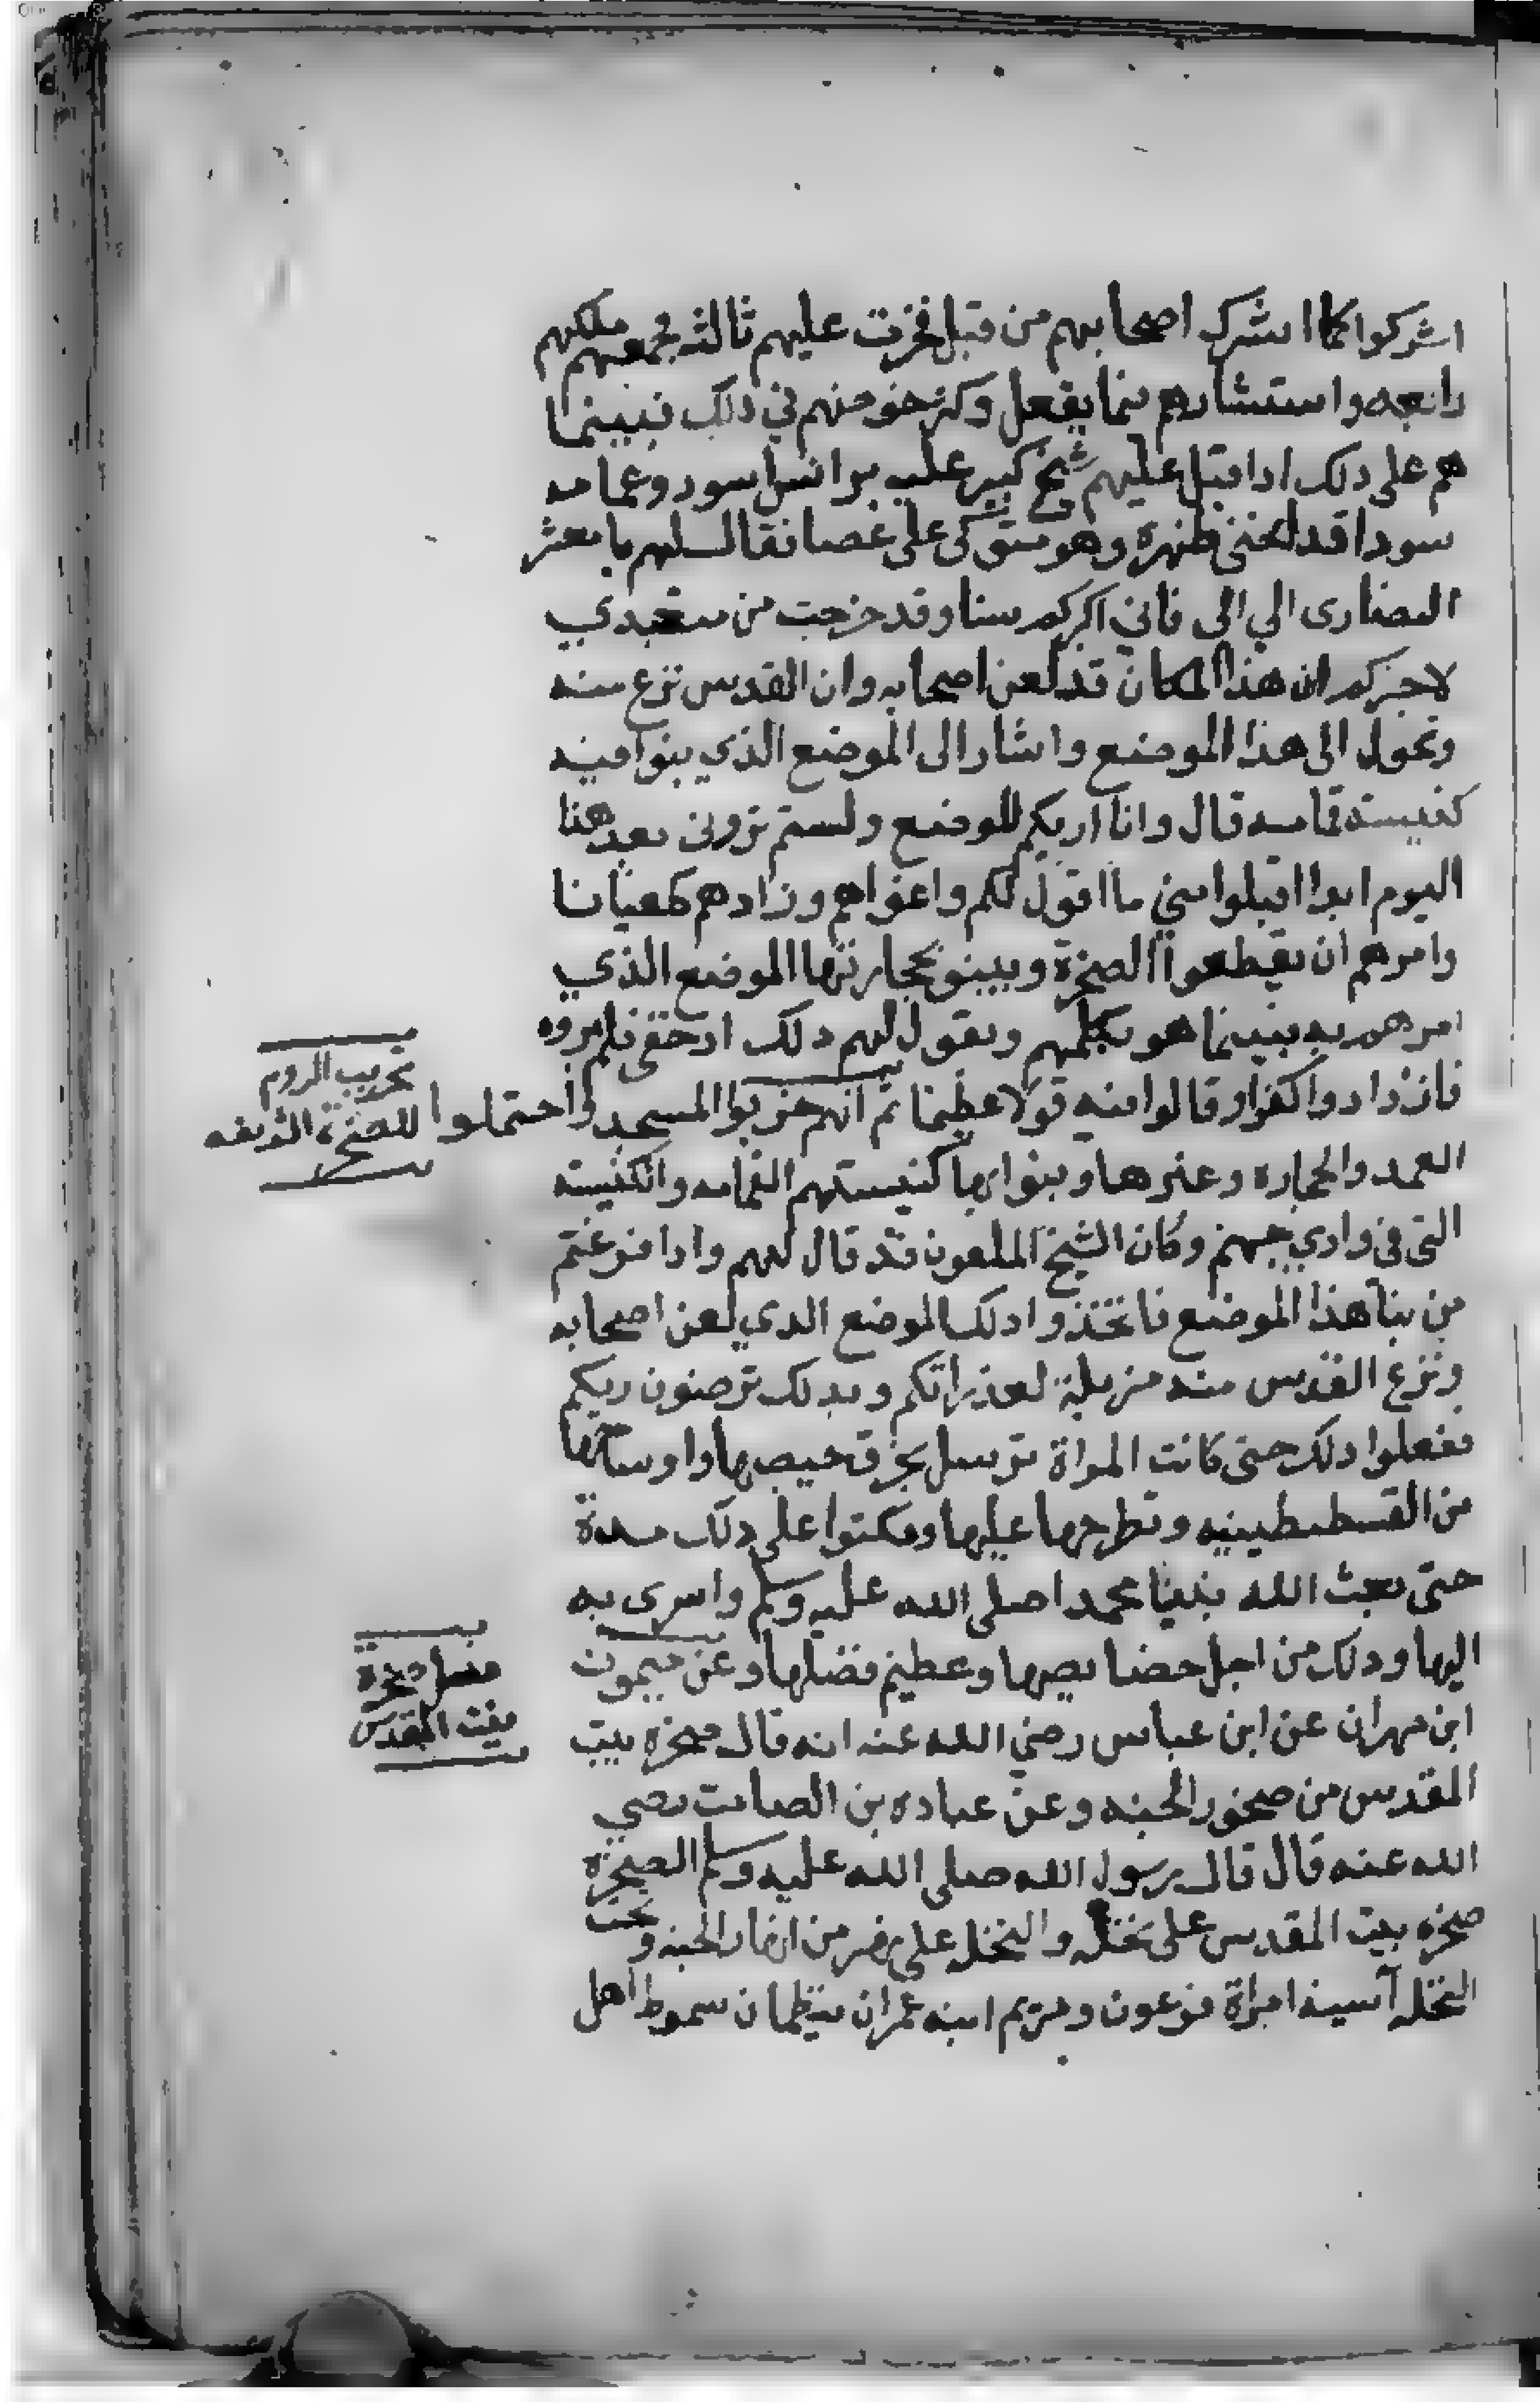 اشركوا كما اشرك اصحابهم من قبل فخرت عليهم ثالثه فجمعهم ملكهم
رابعه واستشارهم فيما يفعل وكثر خوضهم في ذلك فبينما
هم على دلك ادا قبل عليهم شيخ كبير عليه برانس اسود وعمامه
سودا قد انحنى ظهره وهو متوكى على عصا فقال لهم يا معشر
النصارى الي الي فاني اكبركم سنا وقد خرجت من متعبدي
لاخبركم ان هذا المكان قد لعن اصحابه وان القدس نزع منه
وتحول الى هذا الموضع واشار الى الموضع الذي بنوا فيه
كنيسته قمامه قال وانا اريكم الموضع ولستم تروني بعد هذا
اليوم ابدا اقبلوا مني ما اقول لكم واغواهم وزادهم طغيانا
وامرهم ان يقطعوا الصخرة ويبنو بحجارتها الموضع الذي
امرهم به فبينما هو يكلمهم ويقول لهم دلك اد خفى فلم يروه
فازدادوا كفرا وقالوا فيه قولا عظيما ثم انهم خربوا المسجد واحتملوا
تخريب الروم
للصخرة الشريفه
العمد والحجاره وغيرها وبنوا بها كنيستهم القمامه والكنيسته
التى فى وادي جهنم وكان الشيخ الملعون قد قال لهم وادا فرغتم
من بنا هذا الموضع فاتخذوا دلك الموضع الدي لعن اصحابه
ونزع القدس منه مزبلة لعذراتكم وبدلك ترضون ربكم
ففعلوا دلك حتى كانت المراة ترسل بخرق حيضها واوساخها
من القسطنطينيه وتطرحها عليها ومكتوا على دلك مدة
حتى بعث الله نبينا محمدا صلى الله عليه وسلم واسرى به
اليها ودلك من اجل خصايصها وعظيم فضلها وعن ميمون
فضل صخرة
بيت المقدس
ابن مهران عن ابن عباس رضي الله عنه انه قال صخره بيت
المقدس من صخور الجنه وعن عباده بن الصامت رضي
الله عنه قال قال رسول الله صلى الله عليه وسلم الصخرة
صخره بيت المقدس على نخله والنخله على نهر من انهار الجنه وتحت
النخله آسية امراة فرعون ومريم ابنه عمران ينظمان سموط اهل